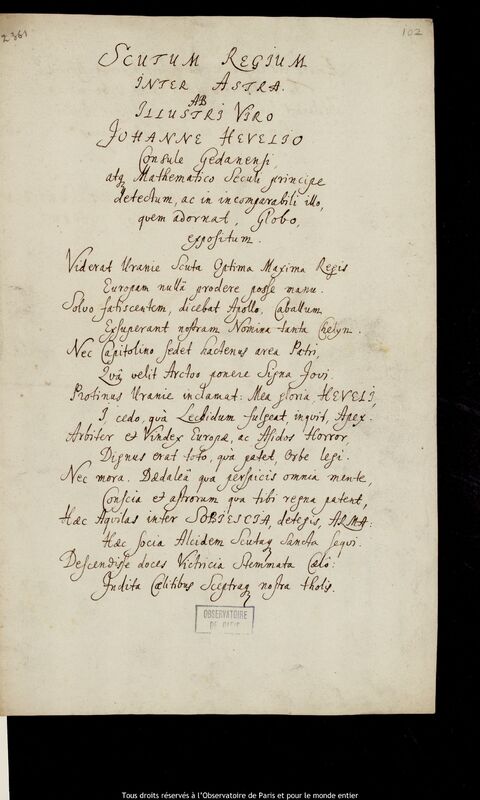 2361
102
SCUTUM REGIUM
INTER ASTRA.
AB
ILLUSTRI VIRO
JOHANNE HEVELIO
Consule Gedanensi,
atq Mathematico Seculi principe
detectum, ac in incomparabili illo,
quem adornat, Globo,
expositum.
Viderat Uranie Scuta Optima Maxima Regis
Europam nullâ prodere posse manu.
Solvo fatiscentem, dicebat Apollo, Caballum
Exsuperant nostram Nomina tanta Chelyn.
Nec Capitolino sedet hactenus area Patri,
Quâ velit Arctoo ponere Signa Jovi.
Protinus Uranie inclamat: Mea gloria HEVELI,
I, cedo, quà Lechidum fulgeat, inquit, Apex.
Arbiter et Vindex Europæ, ac Asidos Horror,
Dignus erat toto, quà patet, Orbe legi.
Nec mora. Dædaleâ qua perspicis omnia mente,
Conscia et astrorum qua tibi regna patent,
Hæc Aquilas inter SOBIESCIA, detegis, ARMA:
Hæc socia Alcidem Scutaq Sancta sequi.
Descendisse doces Victricia Stemmata Cælô:
Indita Cælitibus Sceptraq nostra tholis.
OBSERVATOIRE
DE PARIS
Tous droits réservés à l'Observatoire de Paris et pour le monde entier